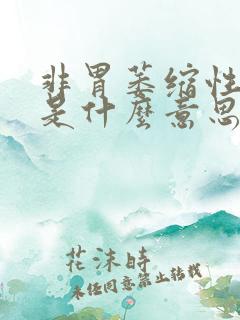 非胃萎缩性
是什麼意思
花沫時
未经同意禁止转载